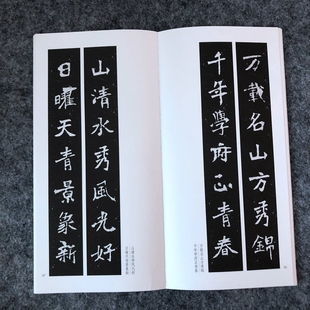 万载名山方秀錦
千年學府正青春
山清水秀風光好
日曜天青景象新